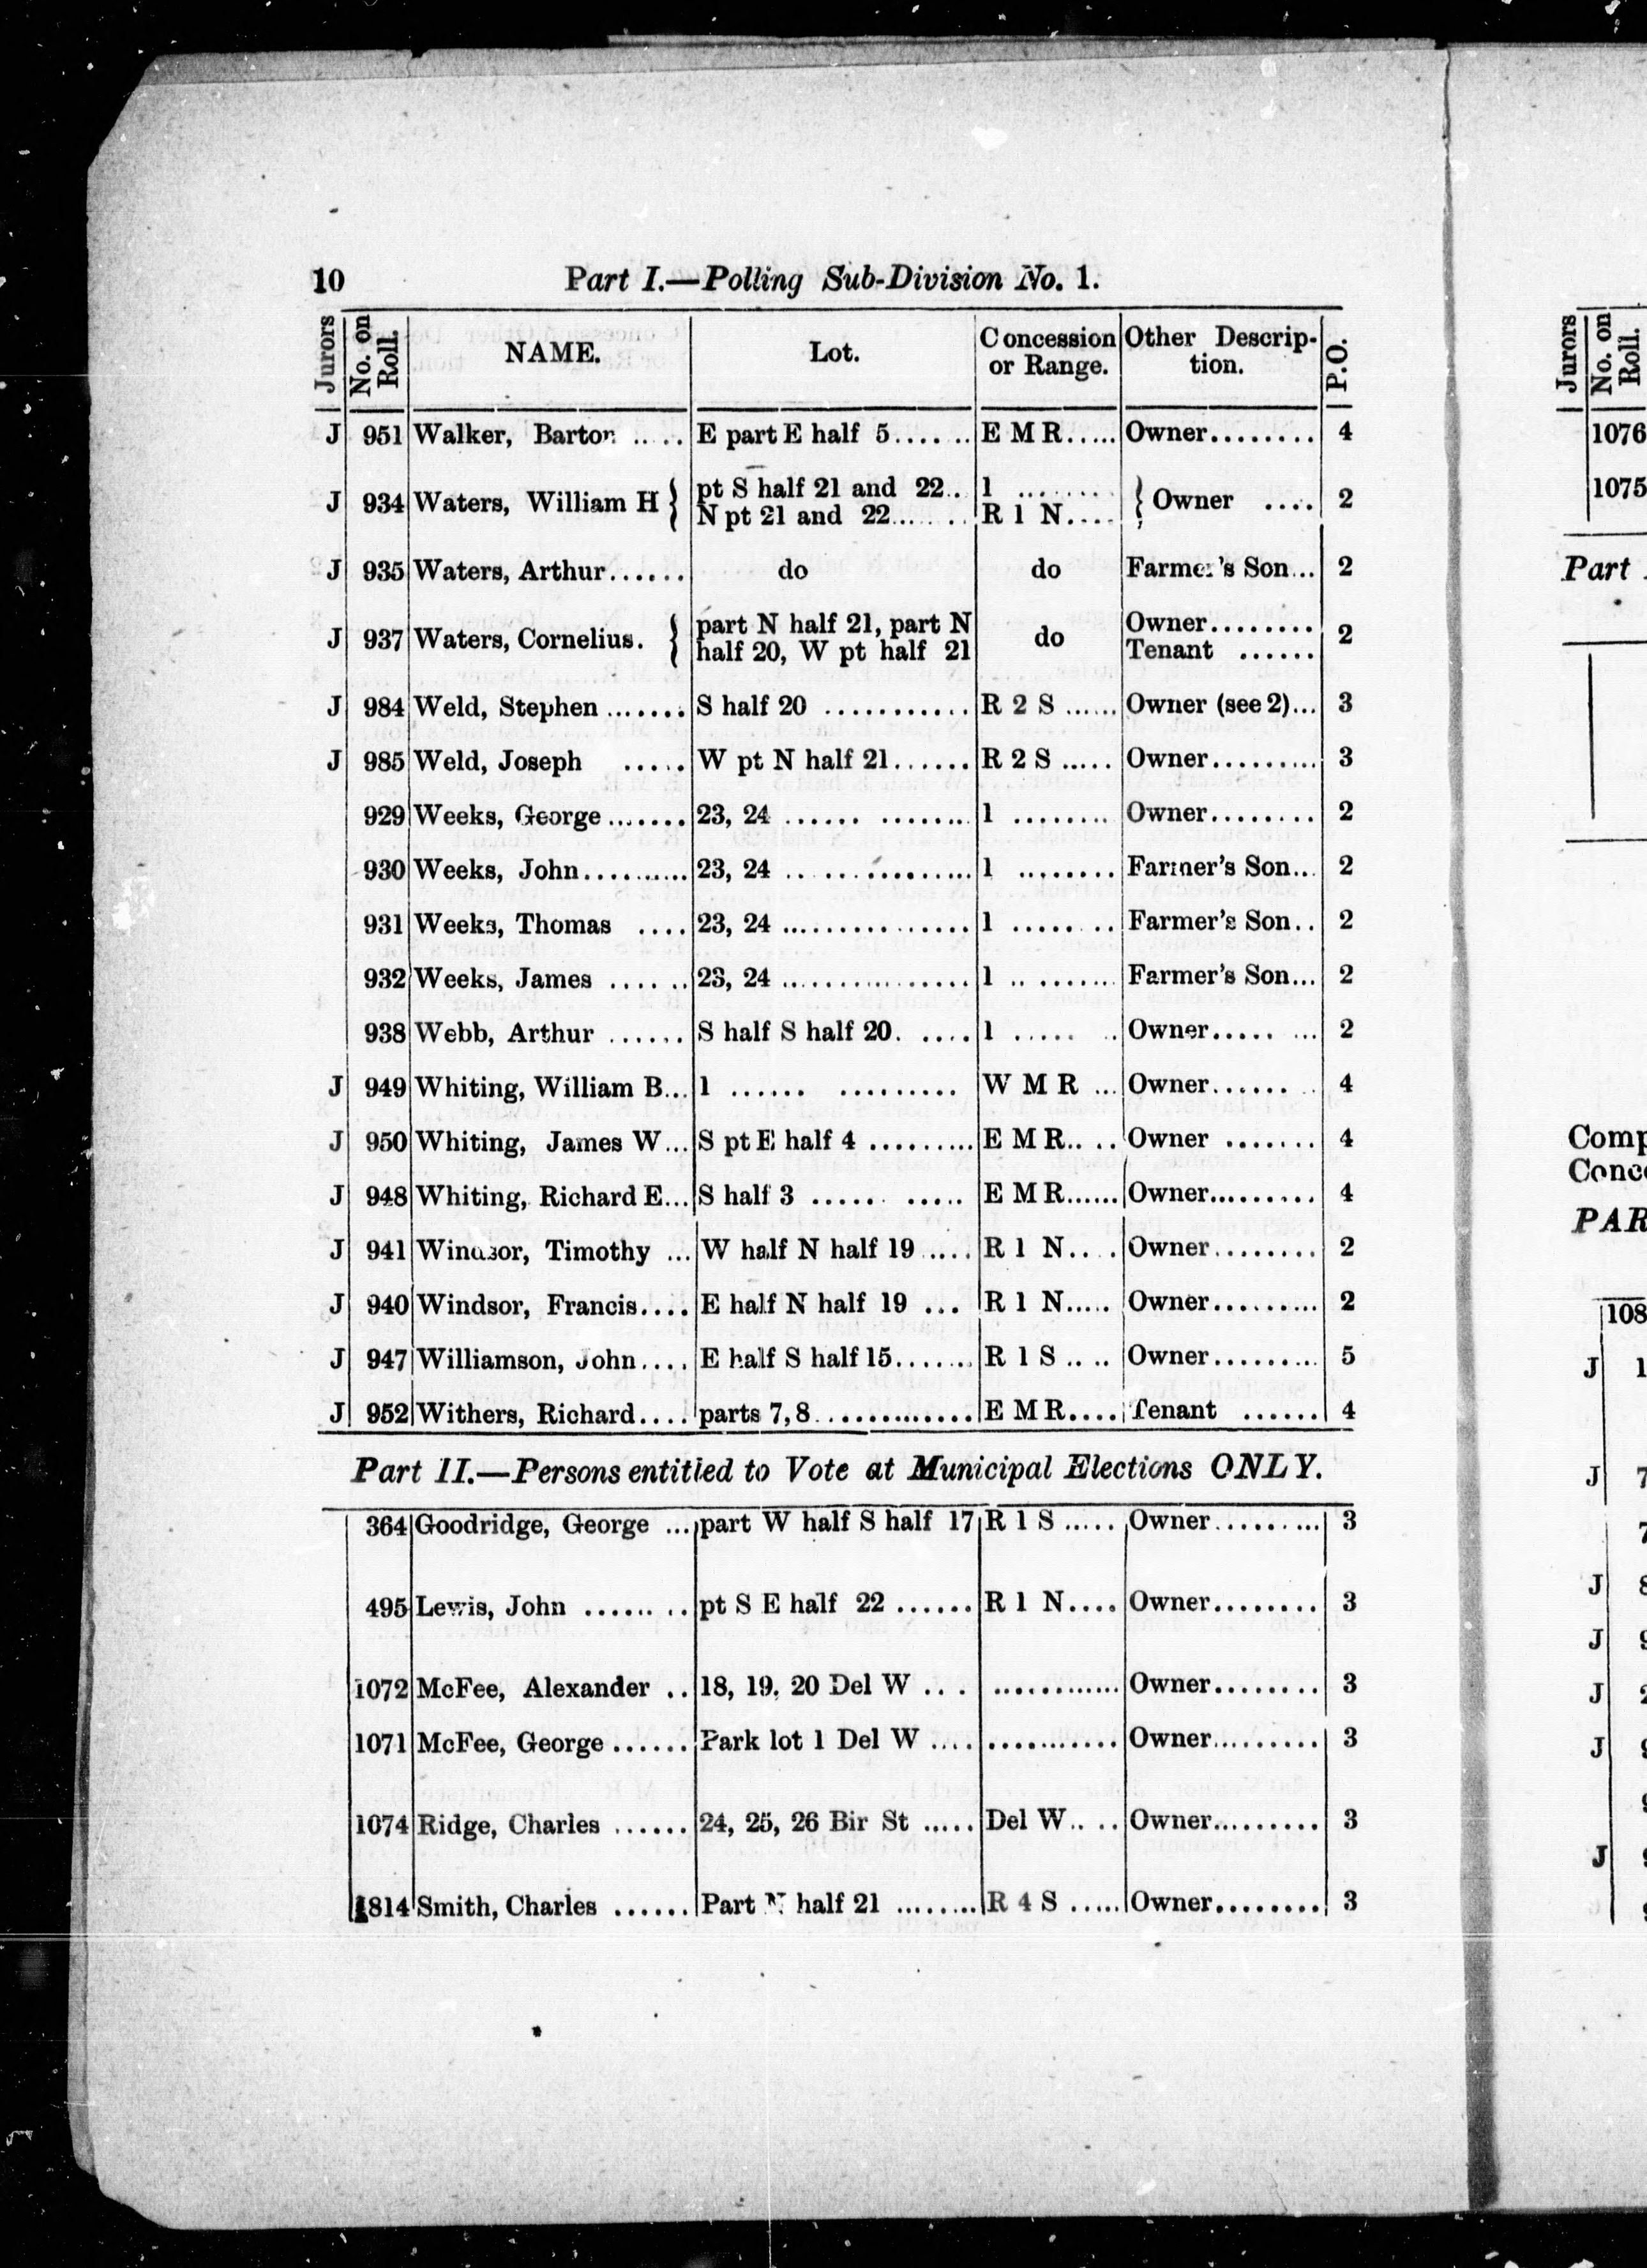 10 Part I.—Polling Sub-Division No. 1.
Jurors No. on Roll. NAME. Lot. Concession or Range. Other Descrip-tion. P.O.
J 951 Walker, Barton ..... E part E half 5....... E M R..... Owner........ 4
J 934 Waters, William H { pt S half 21 and 22.. 1 ........ } Owner .... 2
N pt 21 and 22....... R 1 N....
J 935 Waters, Arthur...... do do Farmer's Son... 2
J 937 Waters, Cornelius. { part N half 21, part N do Owner........ 2
half 20, W pt half 21 Tenant ......
J 984 Weld, Stephen ....... S half 20 ........... R 2 S ...... Owner (see 2)... 3
J 985 Weld, Joseph ..... W pt N half 21....... R 2 S ..... Owner......... 3
929 Weeks, George ....... 23, 24 ...... ........ 1 ........ Owner........ 2
930 Weeks, John.......... 23, 24 .............. 1 ........ Farmer's Son... 2
931 Weeks, Thomas .... 23, 24 .............. 1 ........ Farmer's Son.. 2
932 Weeks, James ...... 23, 24 .............. 1 .. ....... Farmer's Son... 2
938 Webb, Arthur ...... S half S half 20. .... 1 ..... . Owner..... ... 2
J 949 Whiting, William B... 1 ...... ......... W M R ... Owner...... . 4
J 950 Whiting, James W... S pt E half 4 ......... E M R.. .. Owner ....... 4
J 948 Whiting, Richard E... S half 3 ...... ..... E M R...... Owner......... 4
J 941 Windsor, Timothy ... W half N half 19 .... R 1 N.. .. Owner........ 2
J 940 Windsor, Francis.... E half N half 19 ... R 1 N..... Owner......... 2
J 947 Williamson, John.... E half S half 15....... R 1 S .. .. Owner......... 5
J 952 Withers, Richard.... parts 7, 8............. E M R.... Tenant ...... 4
Part II.—Persons entitled to Vote at Municipal Elections ONLY.
364 Goodridge, George ... part W half S half 17 R 1 S ..... Owner......... 3
495 Lewis, John ........ pt S E half 22 ...... R 1 N.... Owner........ 3
1072 McFee, Alexander .. 18, 19, 20 Del W ... ............ Owner........ 3
1071 McFee, George ...... Park lot 1 Del W .... ............ Owner......... 3
1074 Ridge, Charles ...... 24, 25, 26 Bir St ..... Del W.. .. Owner......... 3
1814 Smith, Charles ...... Part N half 21 ........ R 4 S ..... Owner......... 3
Jurors No. on Roll.
1076
1075
Part
Conc
PAR
108
J 1
J 7
7
J 8
J 9
J 2
J 9
9
J 9